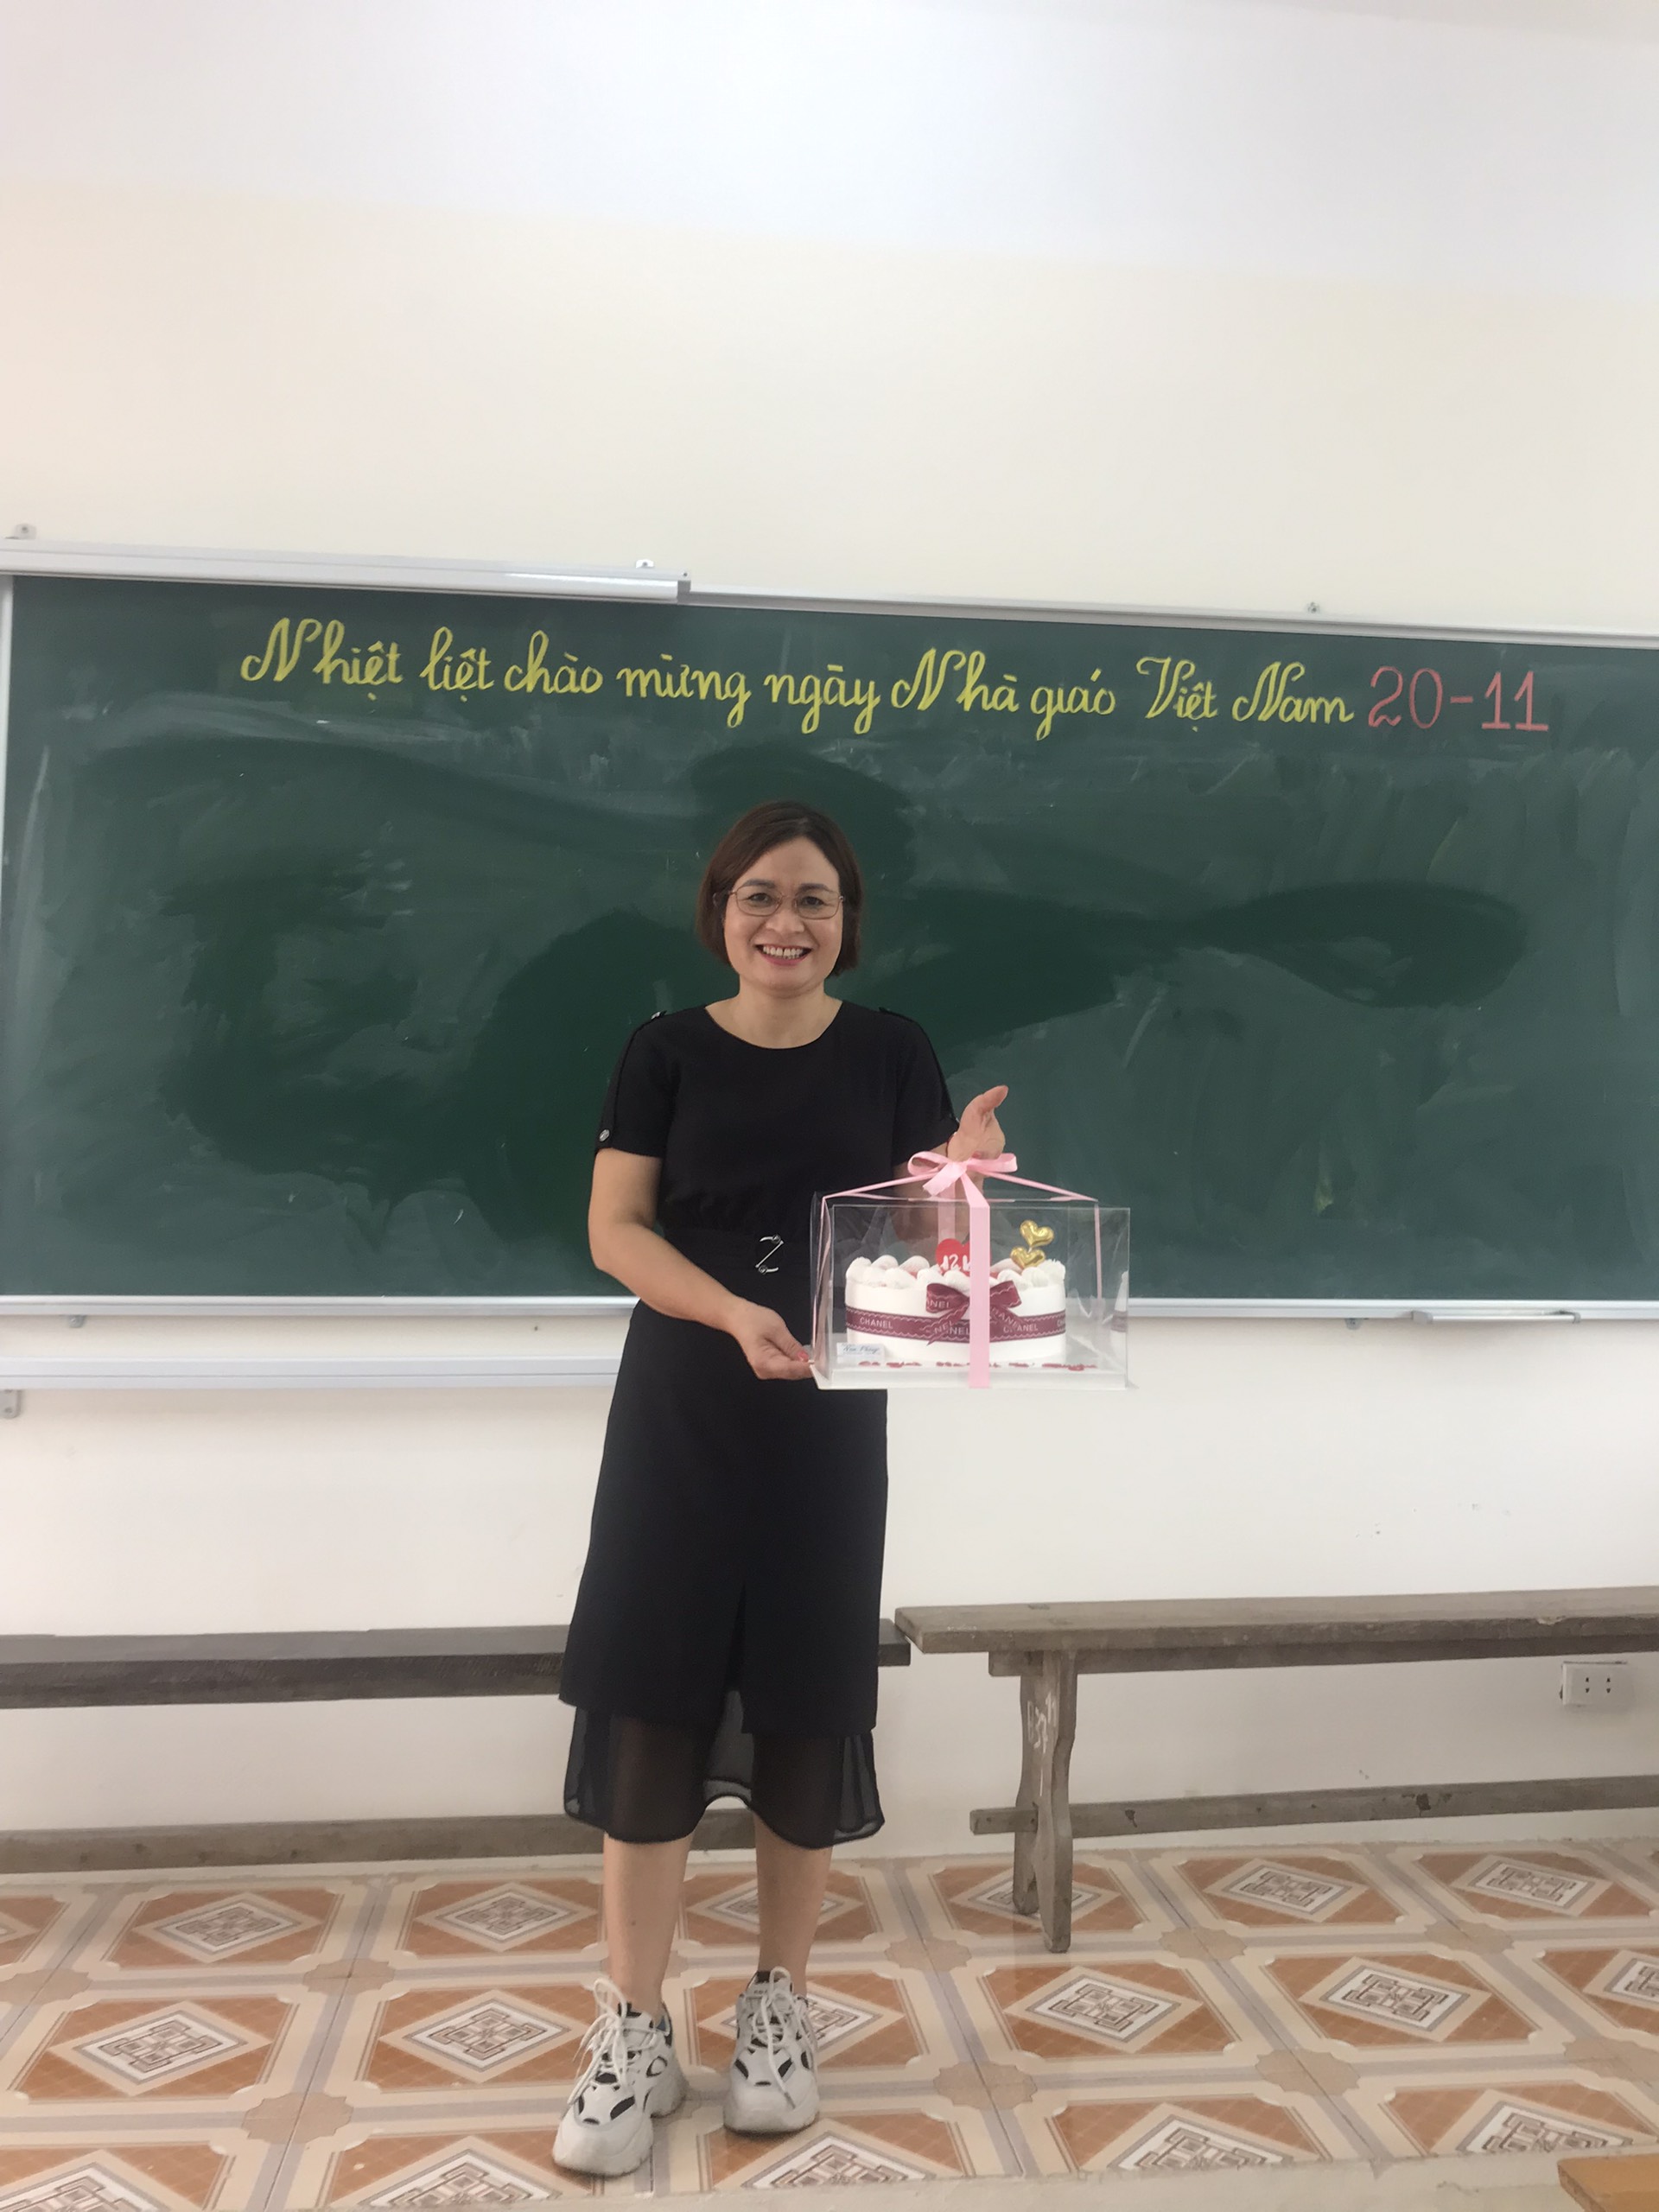 Nhiệt liệt chào mừng ngày Nhà giáo Việt Nam 20-11
CHANEL CHANEL